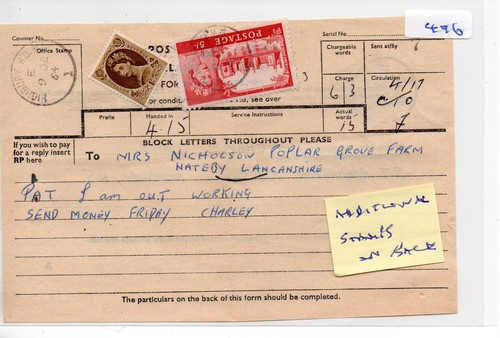 496
Counter No.
Serial No.
Office Stamp
POS
POSTAGE 5/-
Chargeable words
Sent at/by
FOR
or condi
see over
Charge
6 | 3
Circulation
4/17
Prefix
Handed in
4.15
Service Instructions
Actual words
15
7
If you wish to pay for a reply insert RP here
BLOCK LETTERS THROUGHOUT PLEASE
To MRS NICHOLSON POPLAR GROVE FARM
NATEBY LANCANSHIRE
PAT I am OUT WORKING
SEND MONEY FRIDAY CHARLEY
ADDITIONAL
STAMPS
ON BACK
The particulars on the back of this form should be completed.